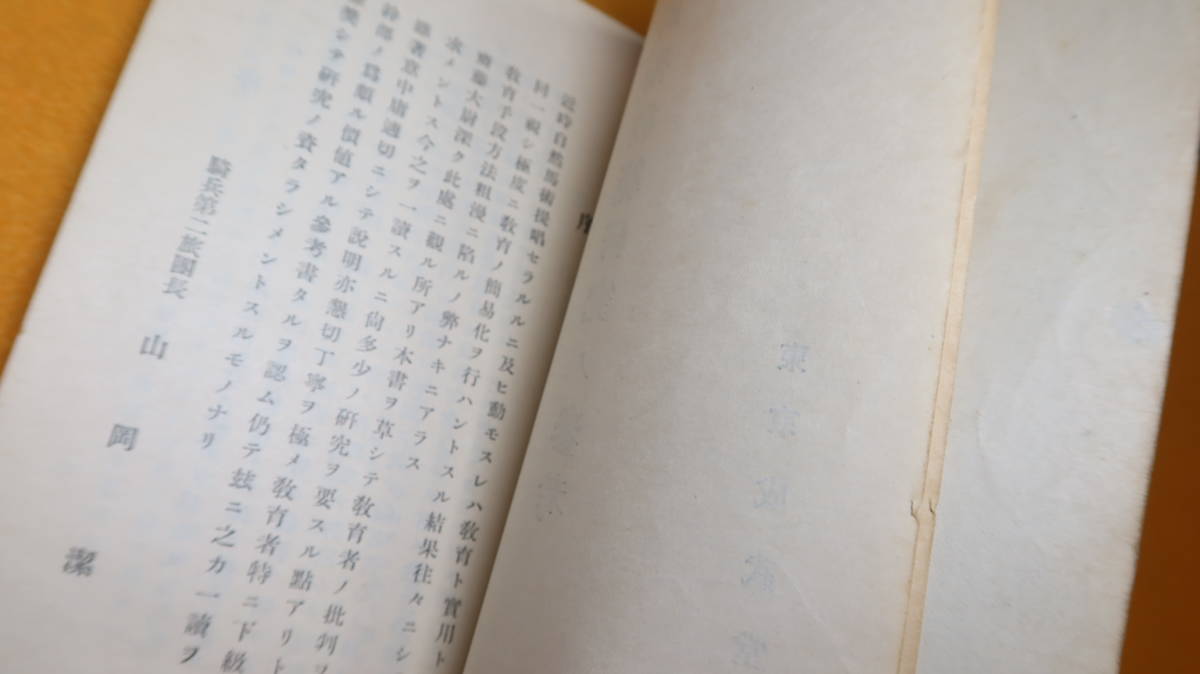 序
近時自然馬術提唱セラルルニ及ヒ動モスレハ教育ト實用ト
同一視シ極度ニ教育ノ簡易化ヲ行ハントスル結果往々ニシ
教育手段方法粗漫ニ陷ルノ弊ナキニアラス
齋藤大尉深ク此處ニ觀ル所アリ本書ヲ草シテ教育者ノ批判ヲ
求メントス今之ヲ一讀スルニ尙多少ノ硏究ヲ要スル點アリト
雖著意中庸適切ニシテ說明亦懇切丁寧ヲ極メ教育者特ニ下級
幹部ノ爲頗ル價値アル參考書タルヲ認ム仍テ玆ニ之カ一讀ヲ
奬シテ硏究ノ資タラシメントスルモノナリ
騎兵第二旅團長
山岡潔
東京成武堂